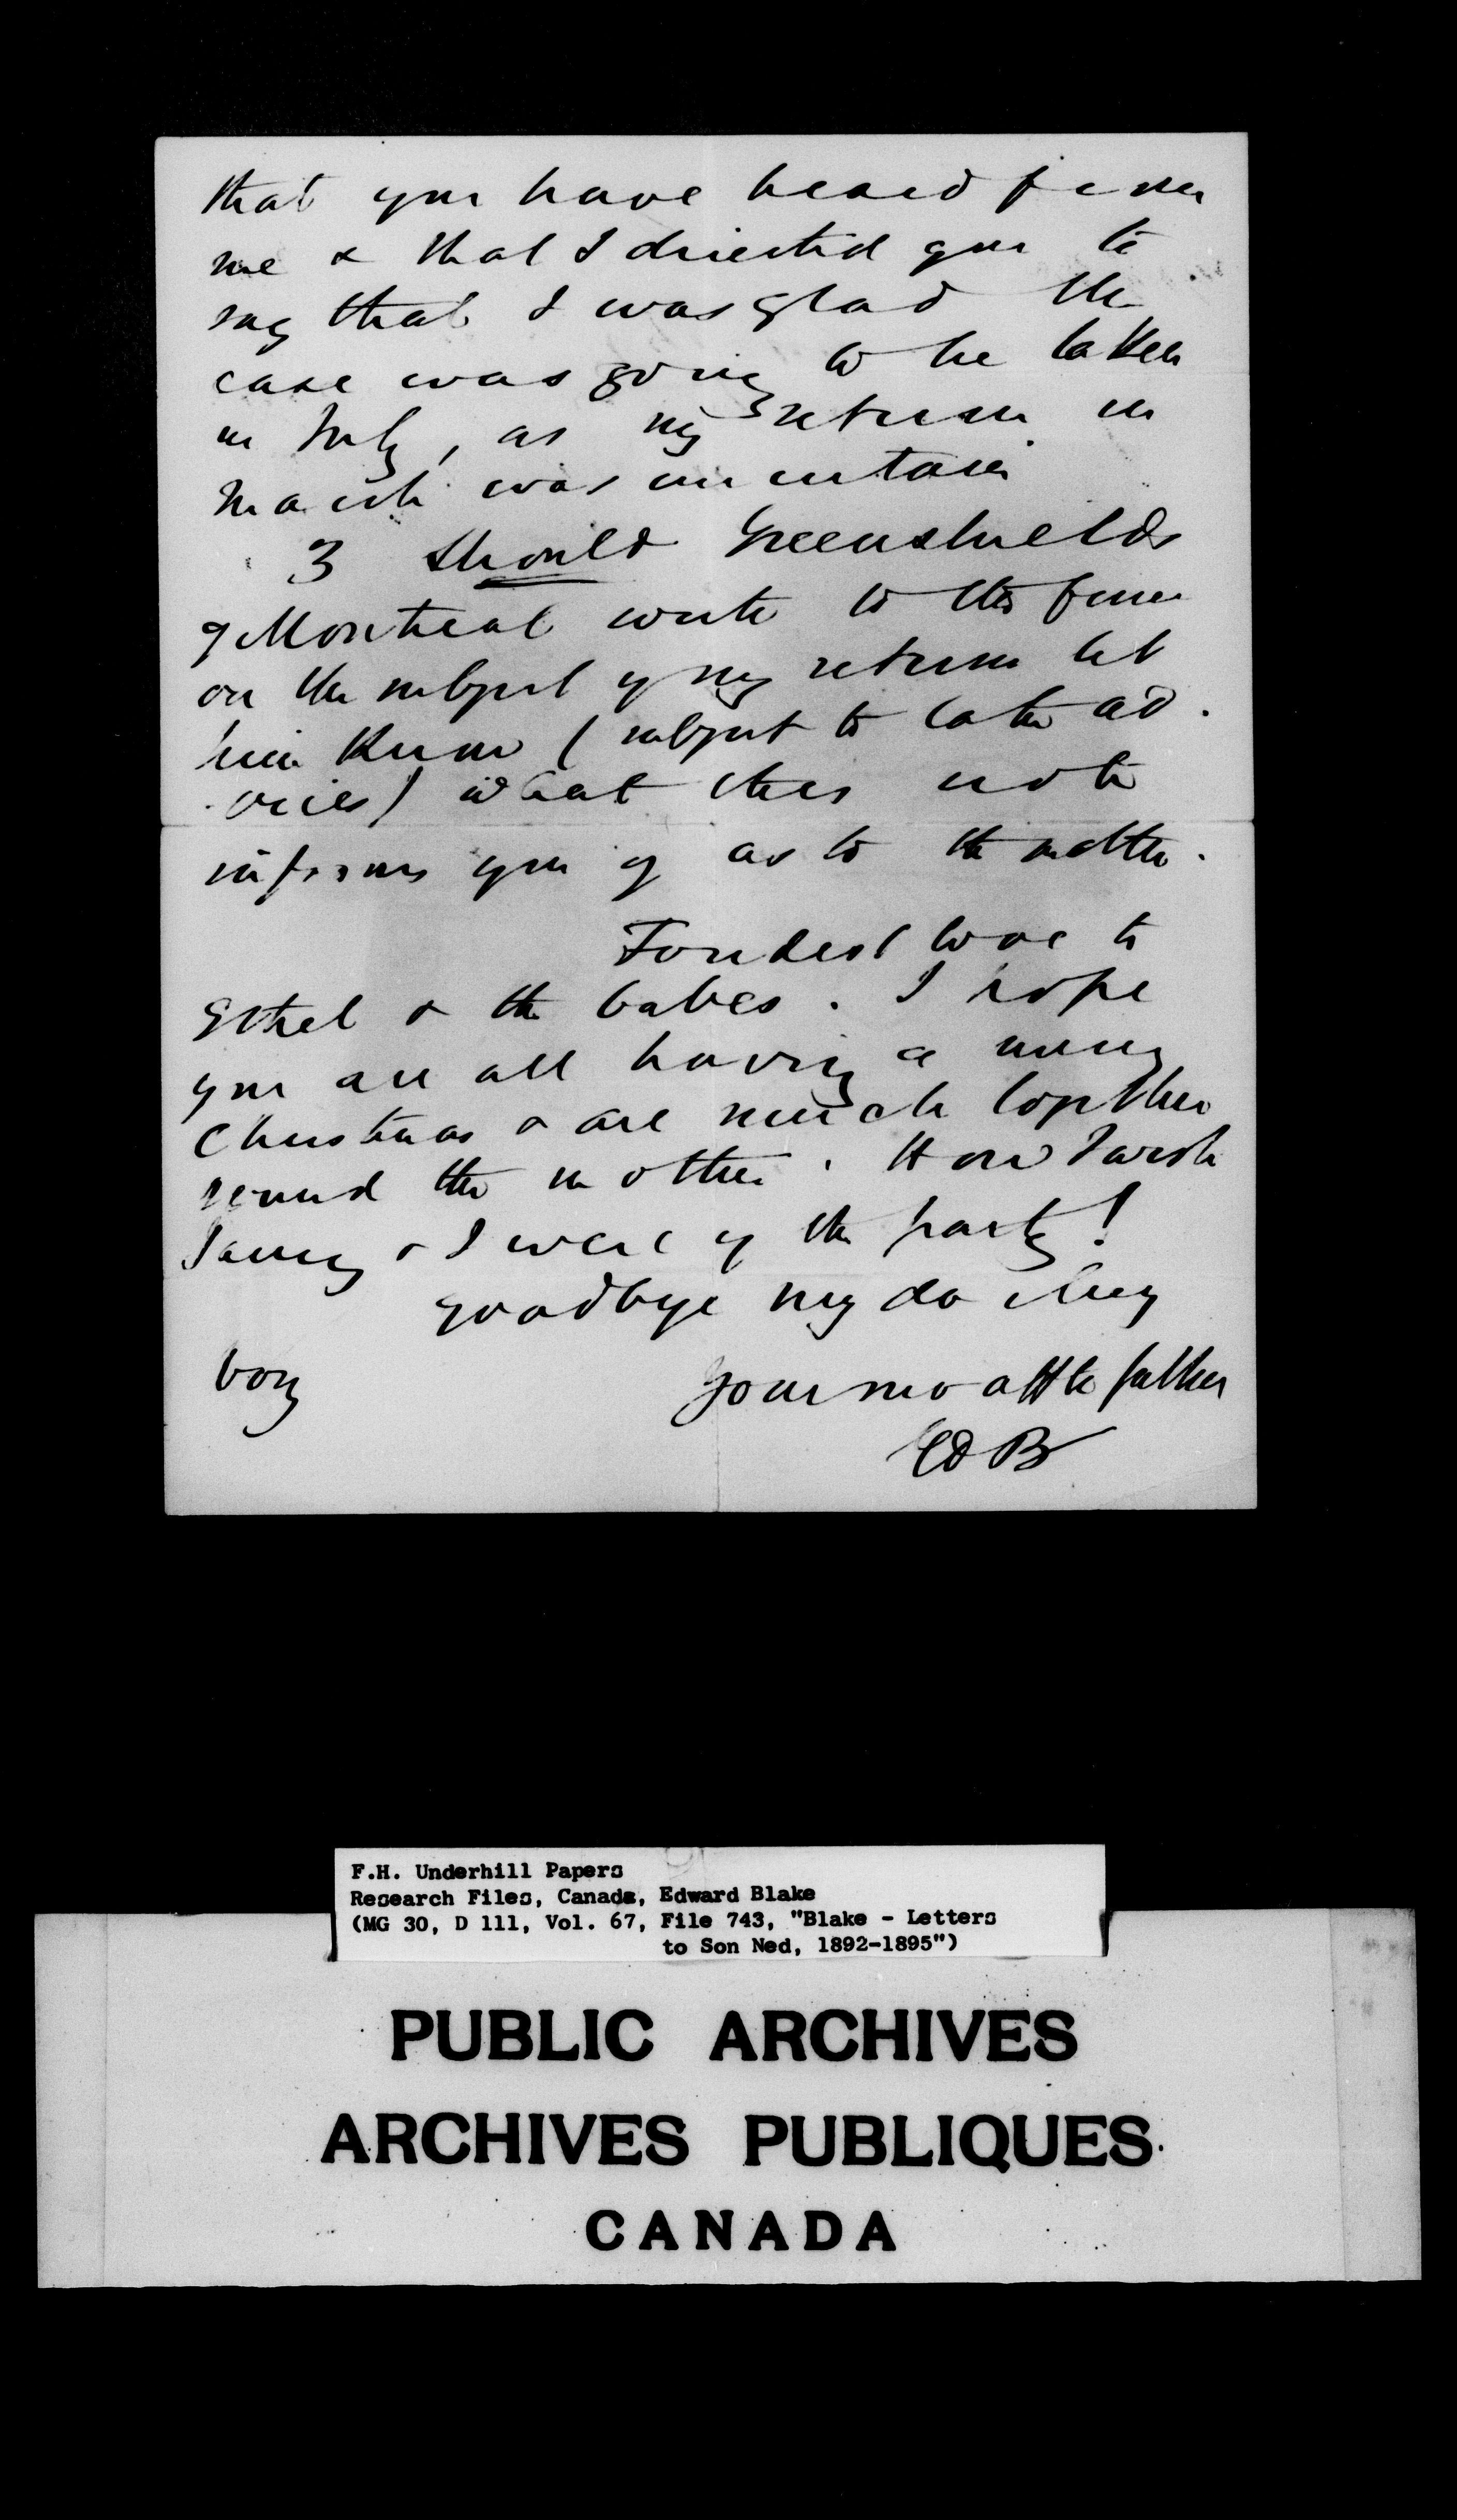 that you have heard from
me & that I directed you to
say that I was glad the
case was going to be taken
in July, as my return in
March was uncertain
3 Should Greenshields
of Montreal write to the firm
on the subject of my return let
him know (subject to later ad
vices) what this note
informs you of as to the matter.
Fondest love to
Ethel & the babes. I hope
you are all having a merry
Christmas & are much together
round the mother. How I wish
& I were of the party!
Goodbye my darling
boy
Your mo afftte father
EdB
F.H. Underhill Papers
Research Files, Canada, Edward Blake
(MG 30, D 111, Vol. 67, File 743, "Blake - Letters
to Son Ned, 1892-1895")
PUBLIC ARCHIVES
ARCHIVES PUBLIQUES
CANADA